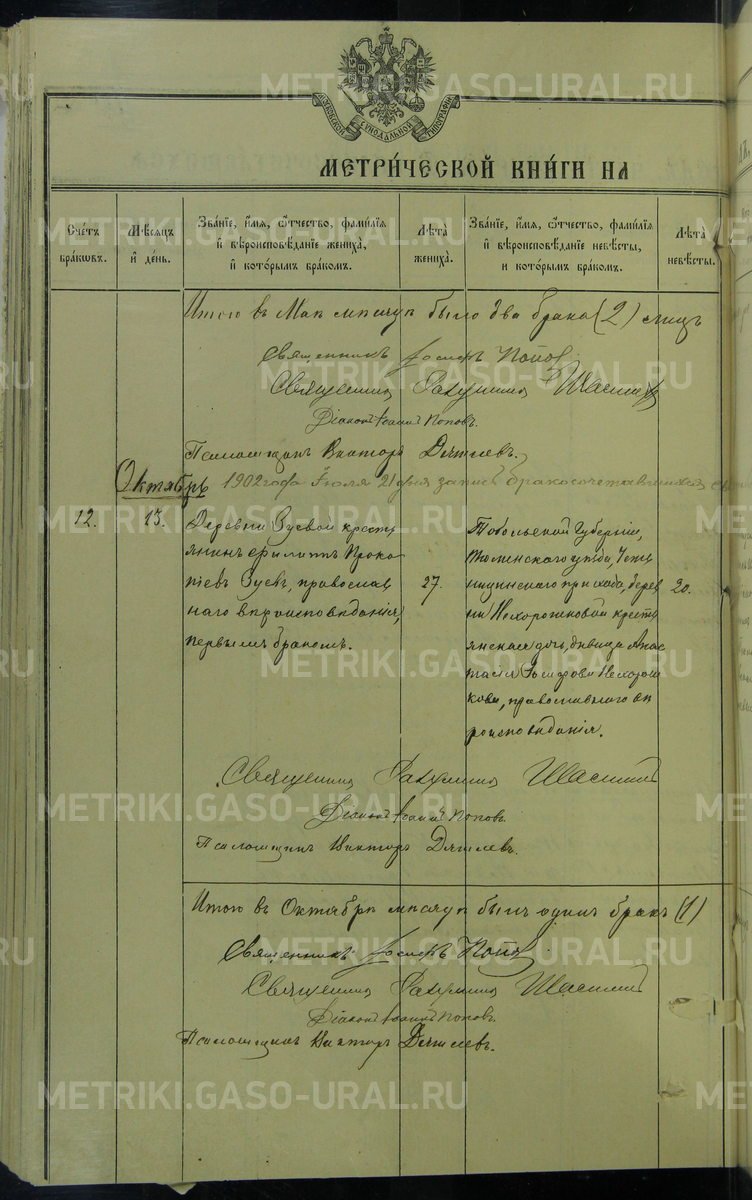 МОСКОВСКОЙ СѴНОДАЛЬНОЙ ТИПОГРАФІИ
МЕТРИ́ЧЕСКОЙ КНИ́ГИ НА
Сче́тъ бра́кωвъ.
Мѣ́сяцъ и҆ де́нь.
Зва́нїе, и҆́мѧ, ѻ҆́тчество, фами́лїѧ и҆ вѣроисповѣ́данїе жениха̀, и҆ кото́рымъ бра́комъ.
Лѣ́та жениха̀.
Зва́нїе, и҆́мѧ, ѻ҆́тчество, фами́лїѧ и҆ вѣроисповѣ́данїе невѣ́сты, и҆ кото́рымъ бра́комъ.
Лѣ́та невѣ́сты.
Итого въ Маѣ мѣсяцѣ было два брака (2)
Священникъ Іосифъ Поповъ
Священникъ
Діаконъ Іоаннъ Поповъ.
Псаломщикъ Викторъ Дягилевъ.
Октябрь
1902 года Іюля 21 дня запись бракосочетавшихся
12.
13.
Деревни Зуевой крестьянинъ Филиппъ Прокопіевъ Зуевъ, православнаго вѣроисповѣданія, первымъ бракомъ.
27.
Тобольской Губерніи,
Тюменскаго уѣзда,
прихода, дерев
ни Нехорошковой кресть
янская дочь, дѣвица Анас
тасія Нехорош
кова, православнаго вѣ
роисповѣданія.
20.
Священникъ
Діаконъ Іоаннъ Поповъ.
Псаломщикъ Викторъ Дягилевъ.
Итого въ Октябрѣ мѣсяцѣ былъ одинъ бракъ (1)
Священникъ Іосифъ Поповъ
Священникъ
Діаконъ Іоаннъ Поповъ.
Псаломщикъ Викторъ Дягилевъ.
METRIKI.GASO-URAL.RU